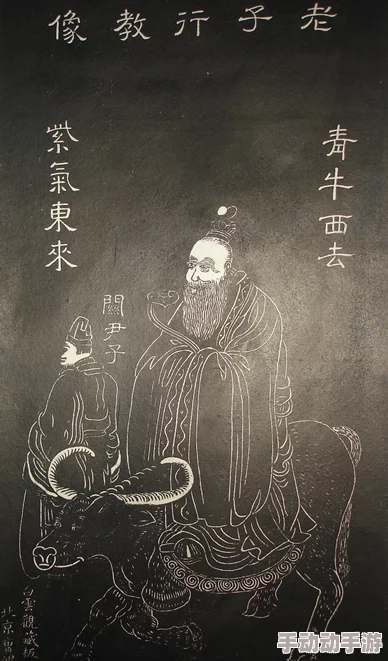 老子行教像
青牛西去
紫氣東來
關尹子
白雲觀藏板
北京
手动动手游